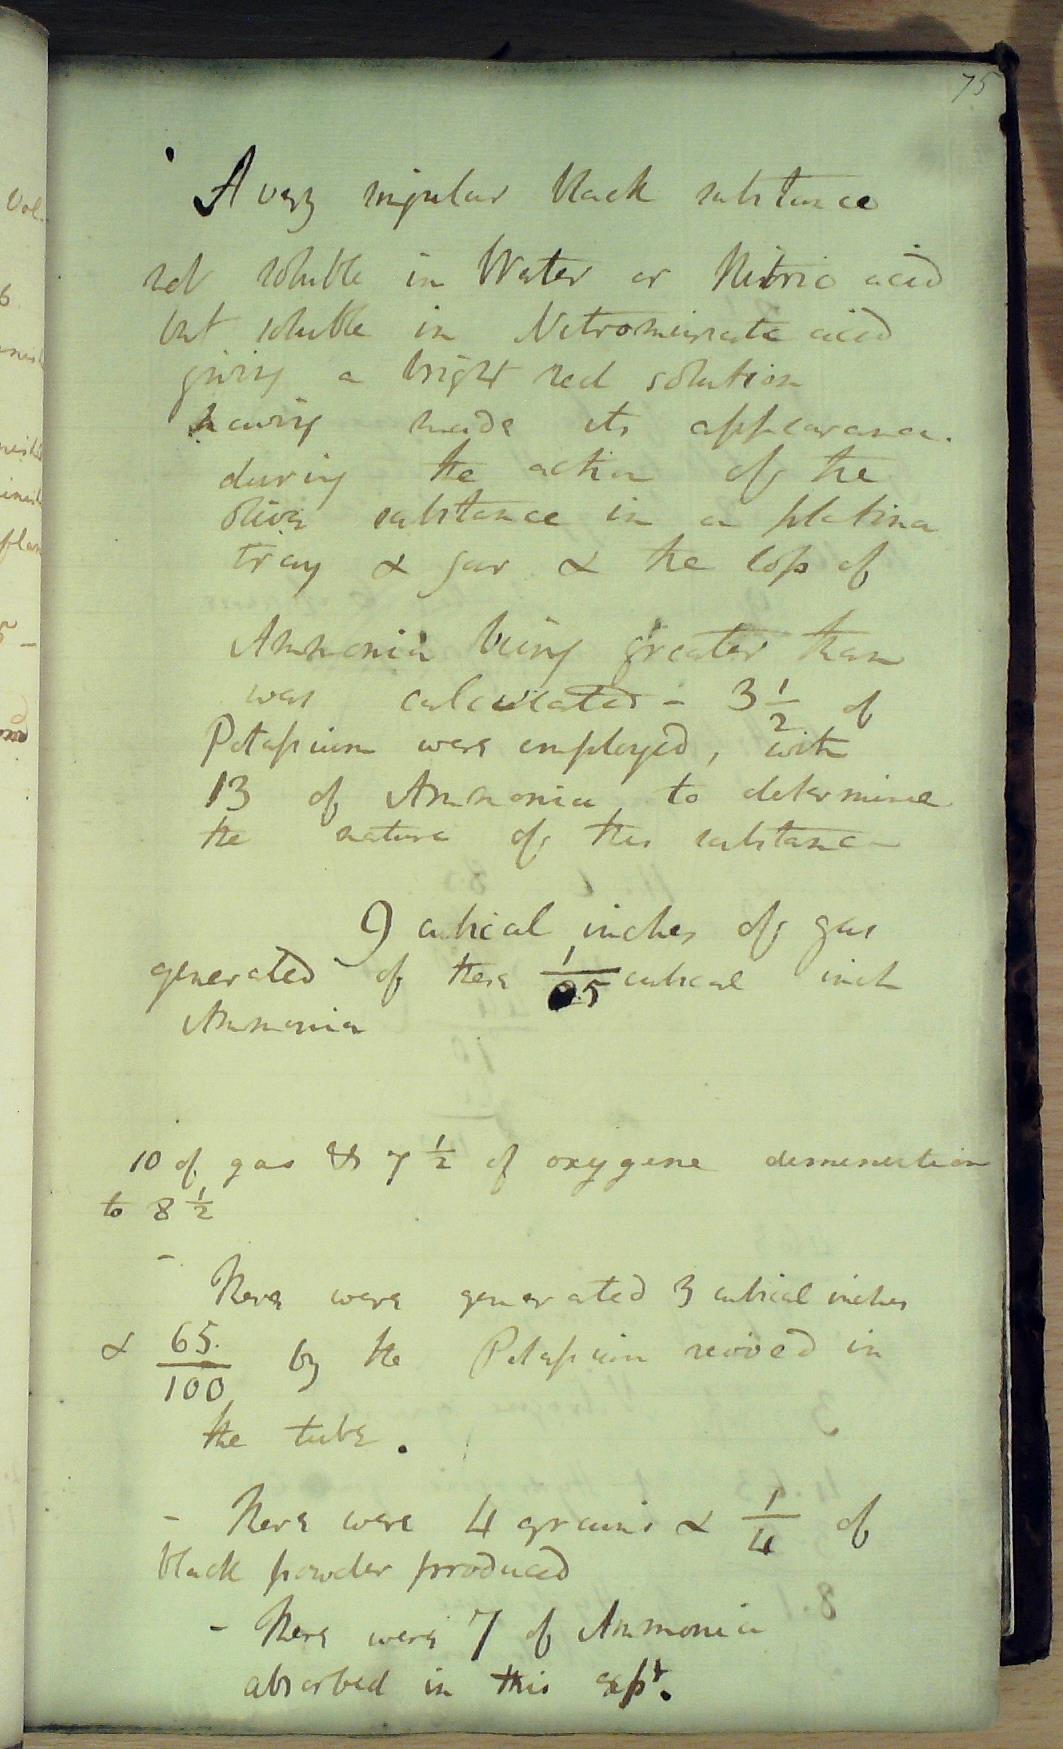 75
A very singular black substance
not soluble in Water or Nitric acid
but soluble in Nitromuriatic acid
giving a bright red solution
having made its appearance.
during the action of the
olive substance in a platina
tray & gas & the loss of
Ammonia being greater than
was calculated - 3 1/2 of
Potassium were employed, with
13 of Ammonia, to determine
the nature of this substance
9 cubical inches of gas
generated of these 1/25 cubical inch
Ammonia
10 of gas & 7 1/2 of oxygene
to 8 1/2
-
There were generated 3 cubical inches
& 65/100 by the Potassium revived in
the tube.
- There were 4 grains & 1/4 of
black powder produced
- There were 7 of Ammonia
absorbed in this expt.